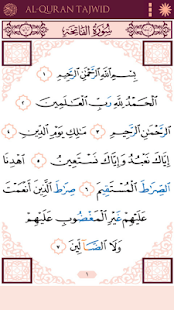 AL-QURAN TAJWID
سُورَةُ الْفَاتِحَةِ
بِسْمِ اللَّهِ الرَّحْمَٰنِ الرَّحِيمِ ١
الْحَمْدُ لِلَّهِ رَبِّ الْعَالَمِينَ ٢
الرَّحْمَٰنِ الرَّحِيمِ ٣ مَالِكِ يَوْمِ الدِّينِ ٤
إِيَّاكَ نَعْبُدُ وَإِيَّاكَ نَسْتَعِينُ ٥ اهْدِنَا
الصِّرَاطَ الْمُسْتَقِيمَ ٦ صِرَاطَ الَّذِينَ أَنْعَمْتَ
عَلَيْهِمْ غَيْرِ الْمَغْضُوبِ عَلَيْهِمْ
وَلَا الضَّالِّينَ ٧
١